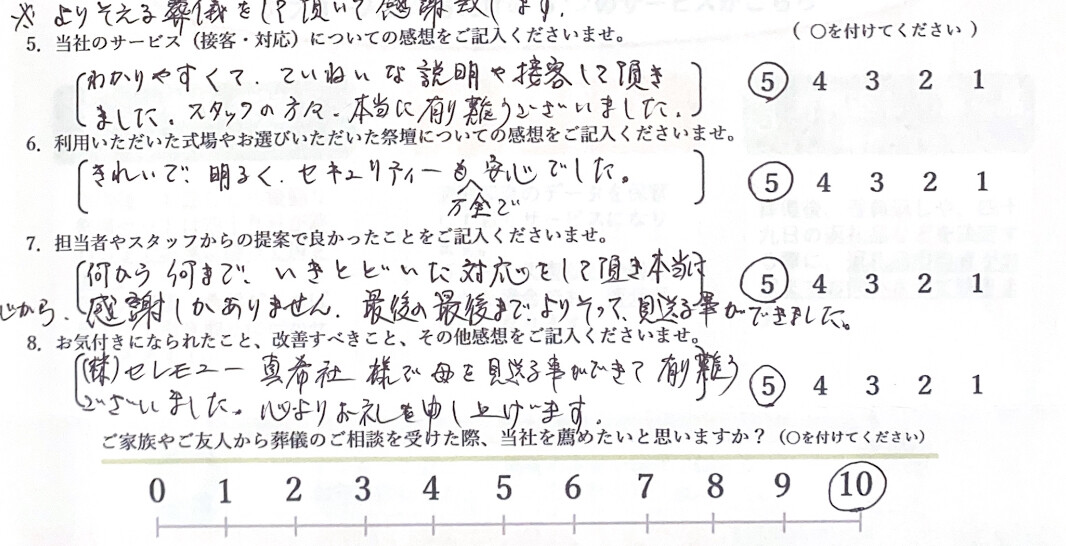 ※ よりそえる葬儀をして頂いて感謝致します.
5. 当社のサービス（接客・対応）についての感想をご記入くださいませ。 （ ○を付けてください ）
わかりやすくて、ていねいな説明や接客して頂き
ました。スタッフの方々、本当に有り難うございました。
5 4 3 2 1
6. 利用いただいた式場やお選びいただいた祭壇についての感想をご記入くださいませ。
きれいで 明るく、セキュリティーも安心でした。
万全で
5 4 3 2 1
7. 担当者やスタッフからの提案で良かったことをご記入くださいませ。
何から何まで、いきとどいた対応をして頂き本当に
心から、感謝しかありません、最後の最後まで、よりそって、見送る事ができました。
5 4 3 2 1
8. お気付きになられたこと、改善すべきこと、その他感想をご記入くださいませ。
(株)セレモニー 真希社 様で 母を見送る事ができて 有り難う
ございました。心よりお礼を申し上げます.
5 4 3 2 1
ご家族やご友人から葬儀のご相談を受けた際、当社を薦めたいと思いますか？（○を付けてください）
0 1 2 3 4 5 6 7 8 9 10